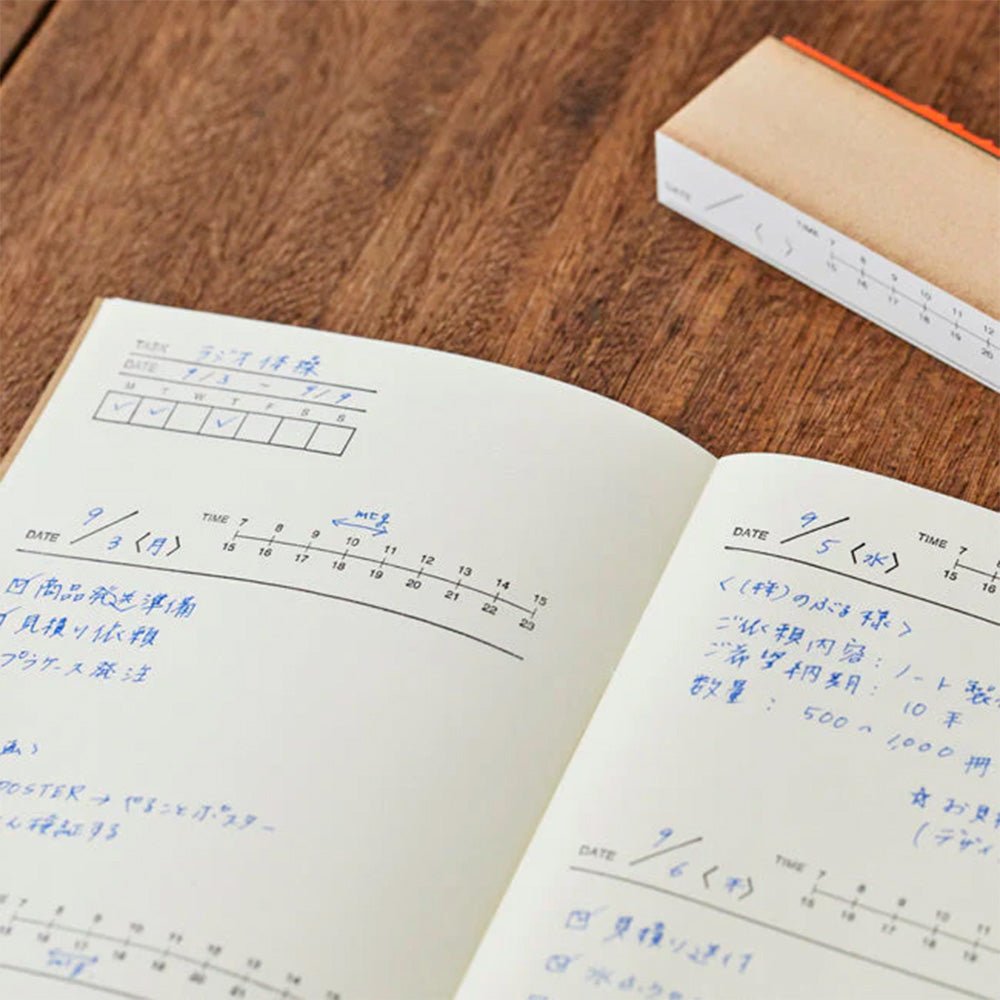 DATE / 〈 〉 TIME 7 8 9 10 11 12
15 16 17 18 19 20
TASK ラジオ体操
DATE 9/3 ~ 9/9
M T W T F S S
✓ ✓ ✓
mtg
DATE 9/3 〈月〉 TIME 7 8 9 10 11 12 13 14 15
15 16 17 18 19 20 21 22 23
☑ 商品発送準備
見積り依頼
プラケース発注
POSTER → やることポスター
検証する
7 8 9 10 11 12 13 14
15 16 17 18 19 20 21
mtg
DATE 9/5 〈水〉 TIME 7
15 16
<(株)のぶる様>
ご依頼内容: ノート製
ご希望納期: 10
数量: 500~1,000冊
☆ お見
(デザイ
DATE 9/6 〈木〉 TIME 7 8 9 10 11
15 16 17 18 19
☑ 見積り送付
☑